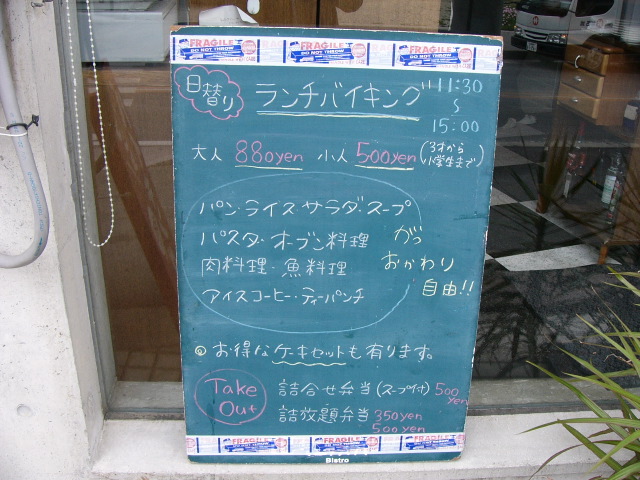 FRAGILE FRAGILE FRAGILE
DO NOT THROW DO NOT THROW DO NOT THROW
日替り ランチバイキング 11:30
〜
15:00
大人 880yen 小人 500yen (3才から小学生まで)
パン・ライス・サラダ・スープ
パスタ・オーブン料理 が
肉料理・魚料理 おかわり
アイスコーヒー・ティーパンチ 自由!!
◎お得なケーキセットも有ります。
Take Out 詰合せ弁当(スープ付) 500yen
詰放題弁当 350yen
500yen
FRAGILE FRAGILE FRAGILE
Bistro